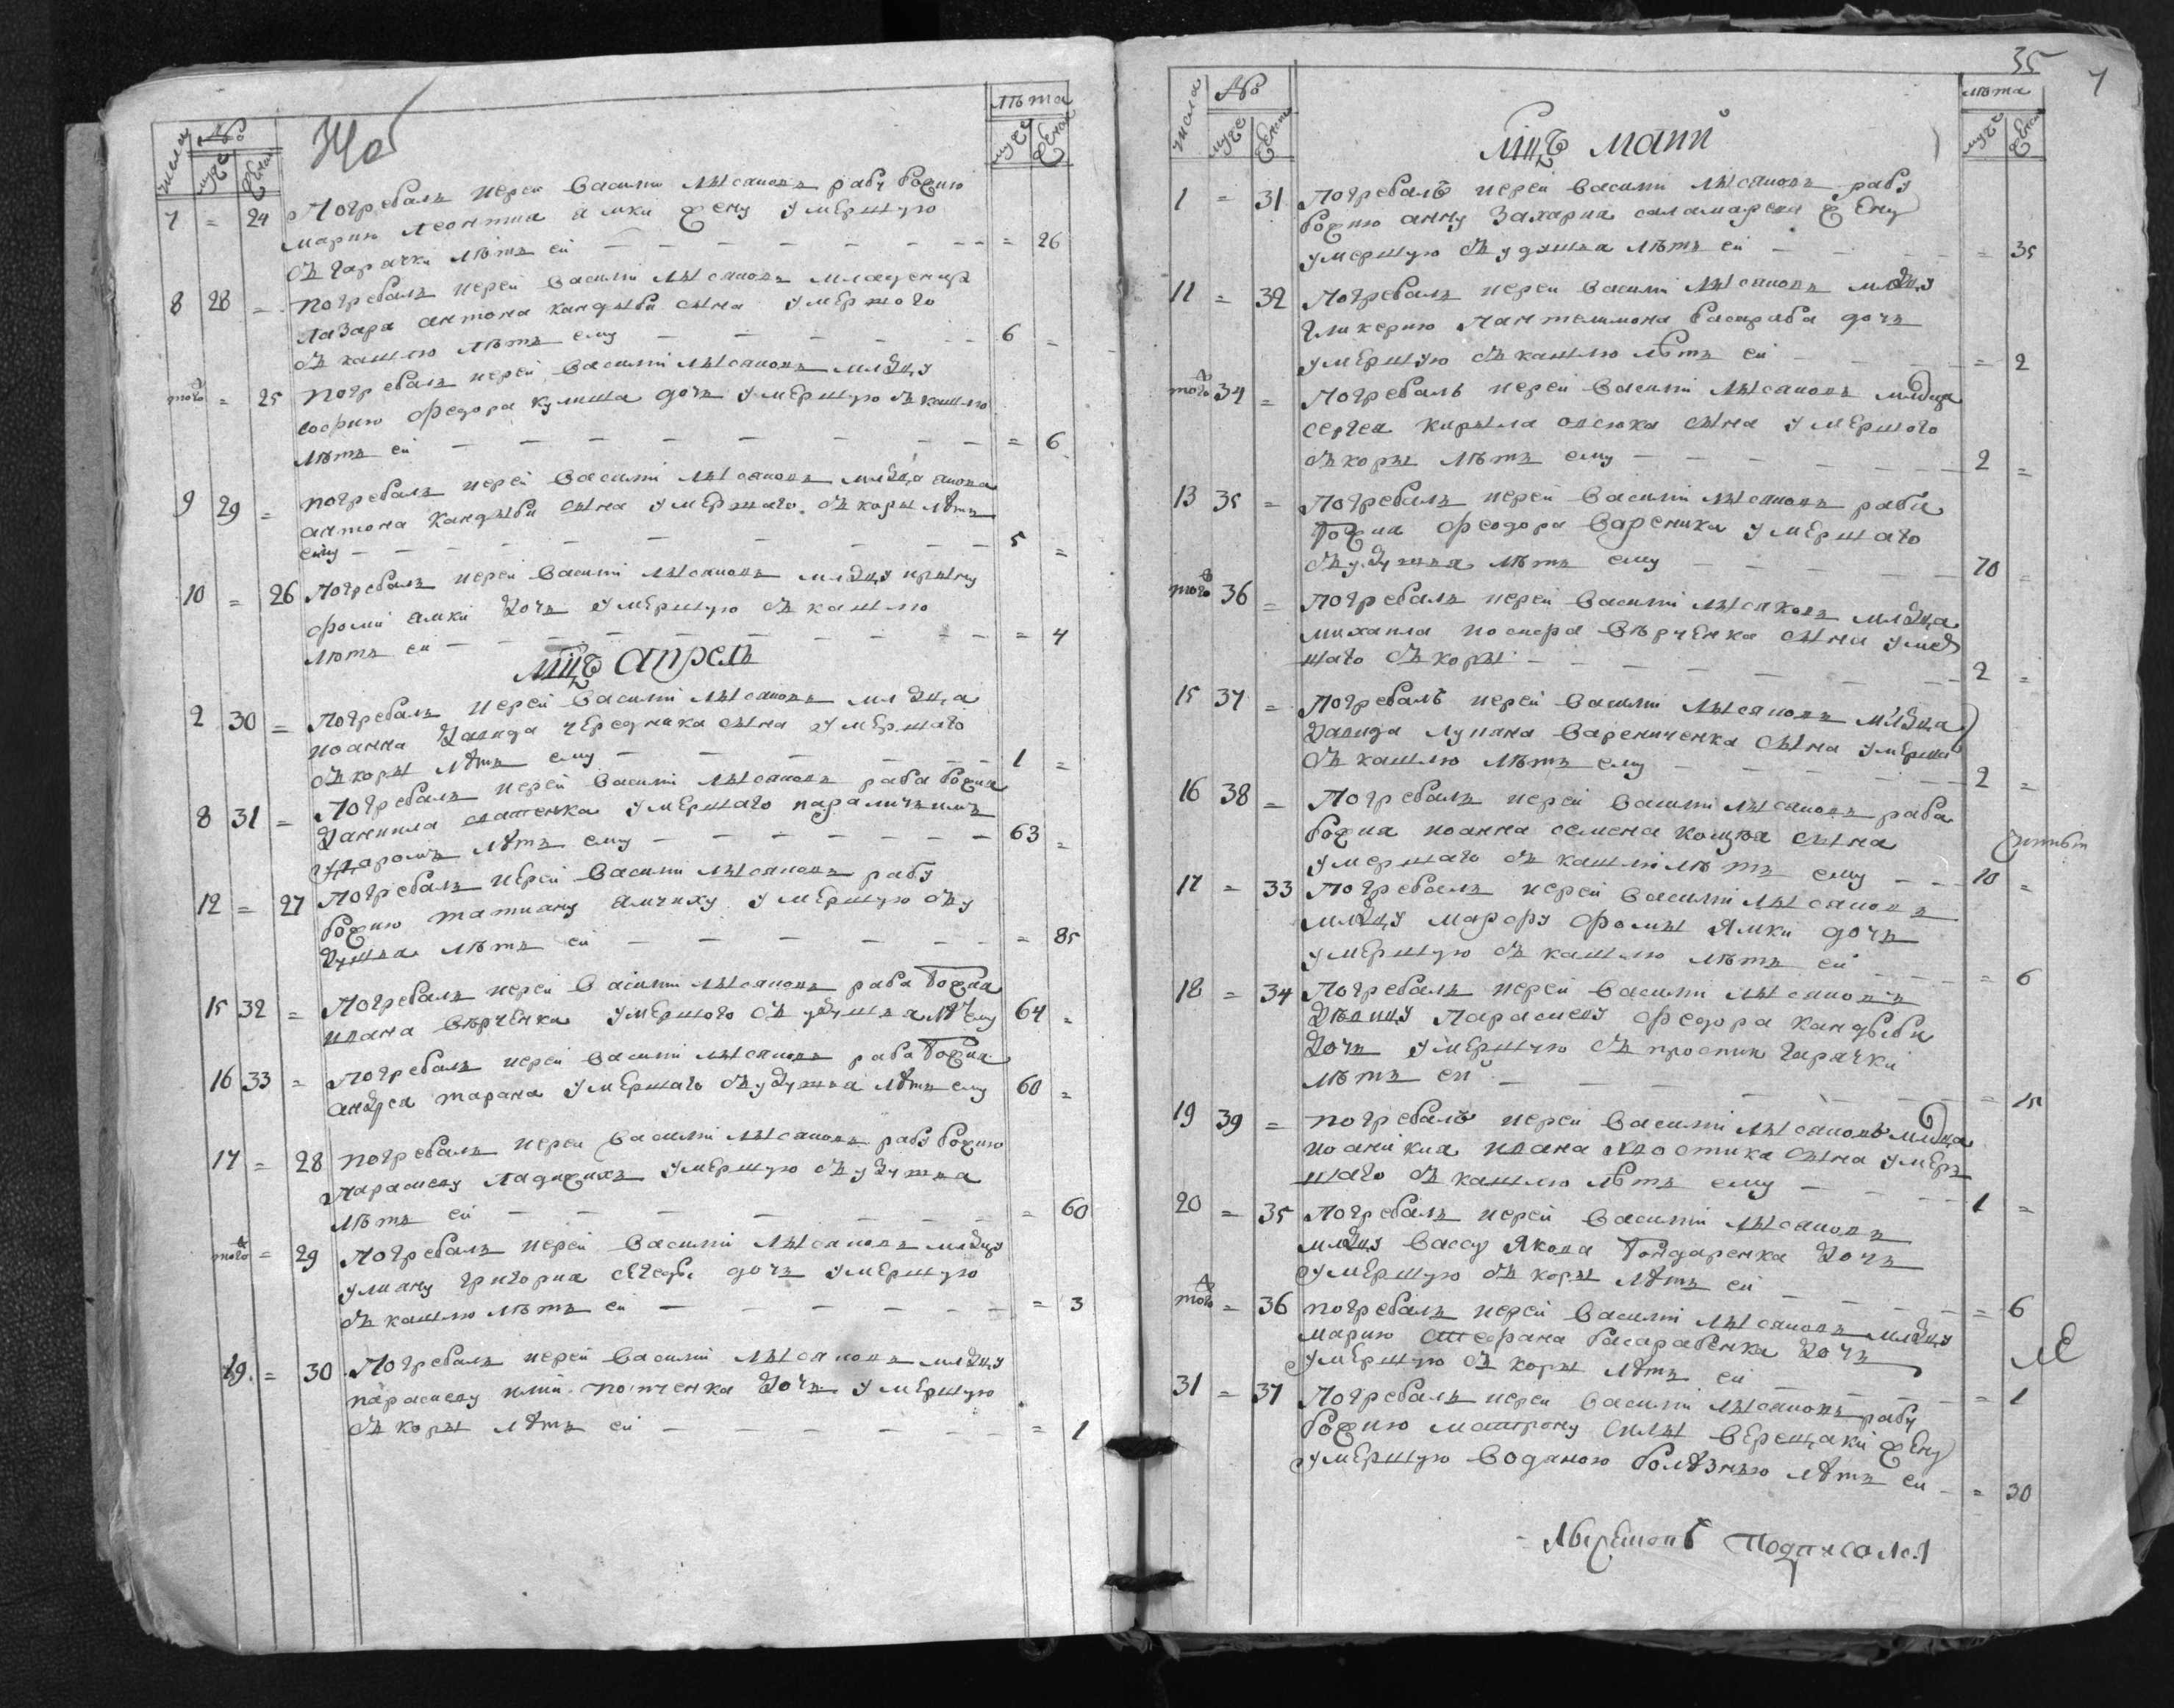 числа № муже женс лѣта муже женс
7 = 24 Погребалъ иерей Василій Лисановъ рабу божию
марию леонтия ямки жену умершую
съ гарачки лѣтъ ей = 26
8 28 = погребалъ иерей Василій Лисановъ младенца
лазара антона кандыби сына умершого
съ кашлю лѣтъ ему 6 =
того = 25 погребалъ иерей Василій Лисановъ млдцу
софию федора кулиша дочь умершую съ кашлю
лѣтъ ей = 6
9 29 = погребалъ иерей Василій Лисановъ млдца
антона кандыби сына умершаго съ коры лѣтъ
ему 5 =
10 = 26 Погребалъ иерей Василій Лисановъ млдцу ирину
фомы ямки дочь умершую съ кашлю
лѣтъ ей = 4
мцъ апрель
2 30 = Погребалъ иерей Василій Лисановъ млдца
иоанна давида чередника сына умершаго
съ коры лѣтъ ему 1 =
8 31 = Погребалъ иерей Василій Лисановъ раба божия
даниила умершаго параличнимъ
ударомъ лѣтъ ему 63 =
12 = 27 Погребалъ иерей Василій Лисановъ рабу
божию татиану ямчиху умершую съ у
душья лѣтъ ей = 85
15 32 = Погребалъ иерей Василій Лисановъ раба божия
ивана вѣрченка умершого съ удушья лѣтъ ему 64 =
16 33 = Погребалъ иерей Василій Лисановъ раба божия
андрея тарана умершаго съ удушья лѣтъ ему 60 =
17 = 28 погребалъ иерей Василій Лисановъ рабу божию
параскеву умершую съ удушья
лѣтъ ей = 60
того = 29 Погребалъ иерей Василій Лисановъ млдцу
улиану григория дочь умершую
съ кашлю лѣтъ ей = 3
19 = 30 Погребалъ иерей Василій Лисановъ млдцу
параскеву дочь умершую
съ коры лѣтъ ей = 1
35
7
числа № муже женс лѣта муже женс
мцъ маий
1 = 31 Погребалъ иерей Василій Лисановъ рабу
божию анну захария саламарска жену
умершую съ удушья лѣтъ ей = 35
11 = 32 Погребалъ иерей Василій Лисановъ млдцу
гликерию пантелимона басараба дочь
умершую съ кашлю лѣтъ ей = 2
того 34 = Погребалъ иерей Василій Лисановъ млдца
сергея кирила сына умершого
съ коры лѣтъ ему 2 =
13 35 = Погребалъ иерей Василій Лисановъ раба
божия феодора вареника умершаго
съ удушья лѣтъ ему 70 =
того 36 = погребалъ иерей Василій Лисановъ млдца
михаила вѣрченка сына умер
шаго съ коры 2 =
15 37 = Погребалъ иерей Василій Лисановъ млдца
давида лупана варениченка сына умерша
съ кашлю лѣтъ ему 2 =
16 38 = Погребалъ иерей Василій Лисановъ раба
божия иоанна семена сына
умершаго съ кашлю лѣтъ ему 10 =
17 = 33 Погребалъ иерей Василій Лисановъ
млдцу марфу фомы Ямки дочь
умершую съ кашлю лѣтъ ей = 6
18 = 34 Погребалъ иерей Василій Лисановъ
двлицу Параскеву федора кандыби
дочь умершую съ гарачки
лѣтъ ей = 15
19 39 = погребалъ иерей Василій Лисановъ млдца
иоаникия ивана хвостика сына умер
шаго съ кашлю лѣтъ ему 1 =
20 = 35 Погребалъ иерей Василій Лисановъ
млдцу Вассу Якова бондаренка дочь
умершую съ коры лѣтъ ей = 6
того = 36 погребалъ иерей Василій Лисановъ млдцу
марию стефана басарабенка дочь
умершую съ коры лѣтъ ей = 1
31 = 37 Погребалъ иерей Василій Лисановъ рабу
божию матрону силы верещаки жену
умершую водяною болѣзнью лѣтъ ей = 30
подписался